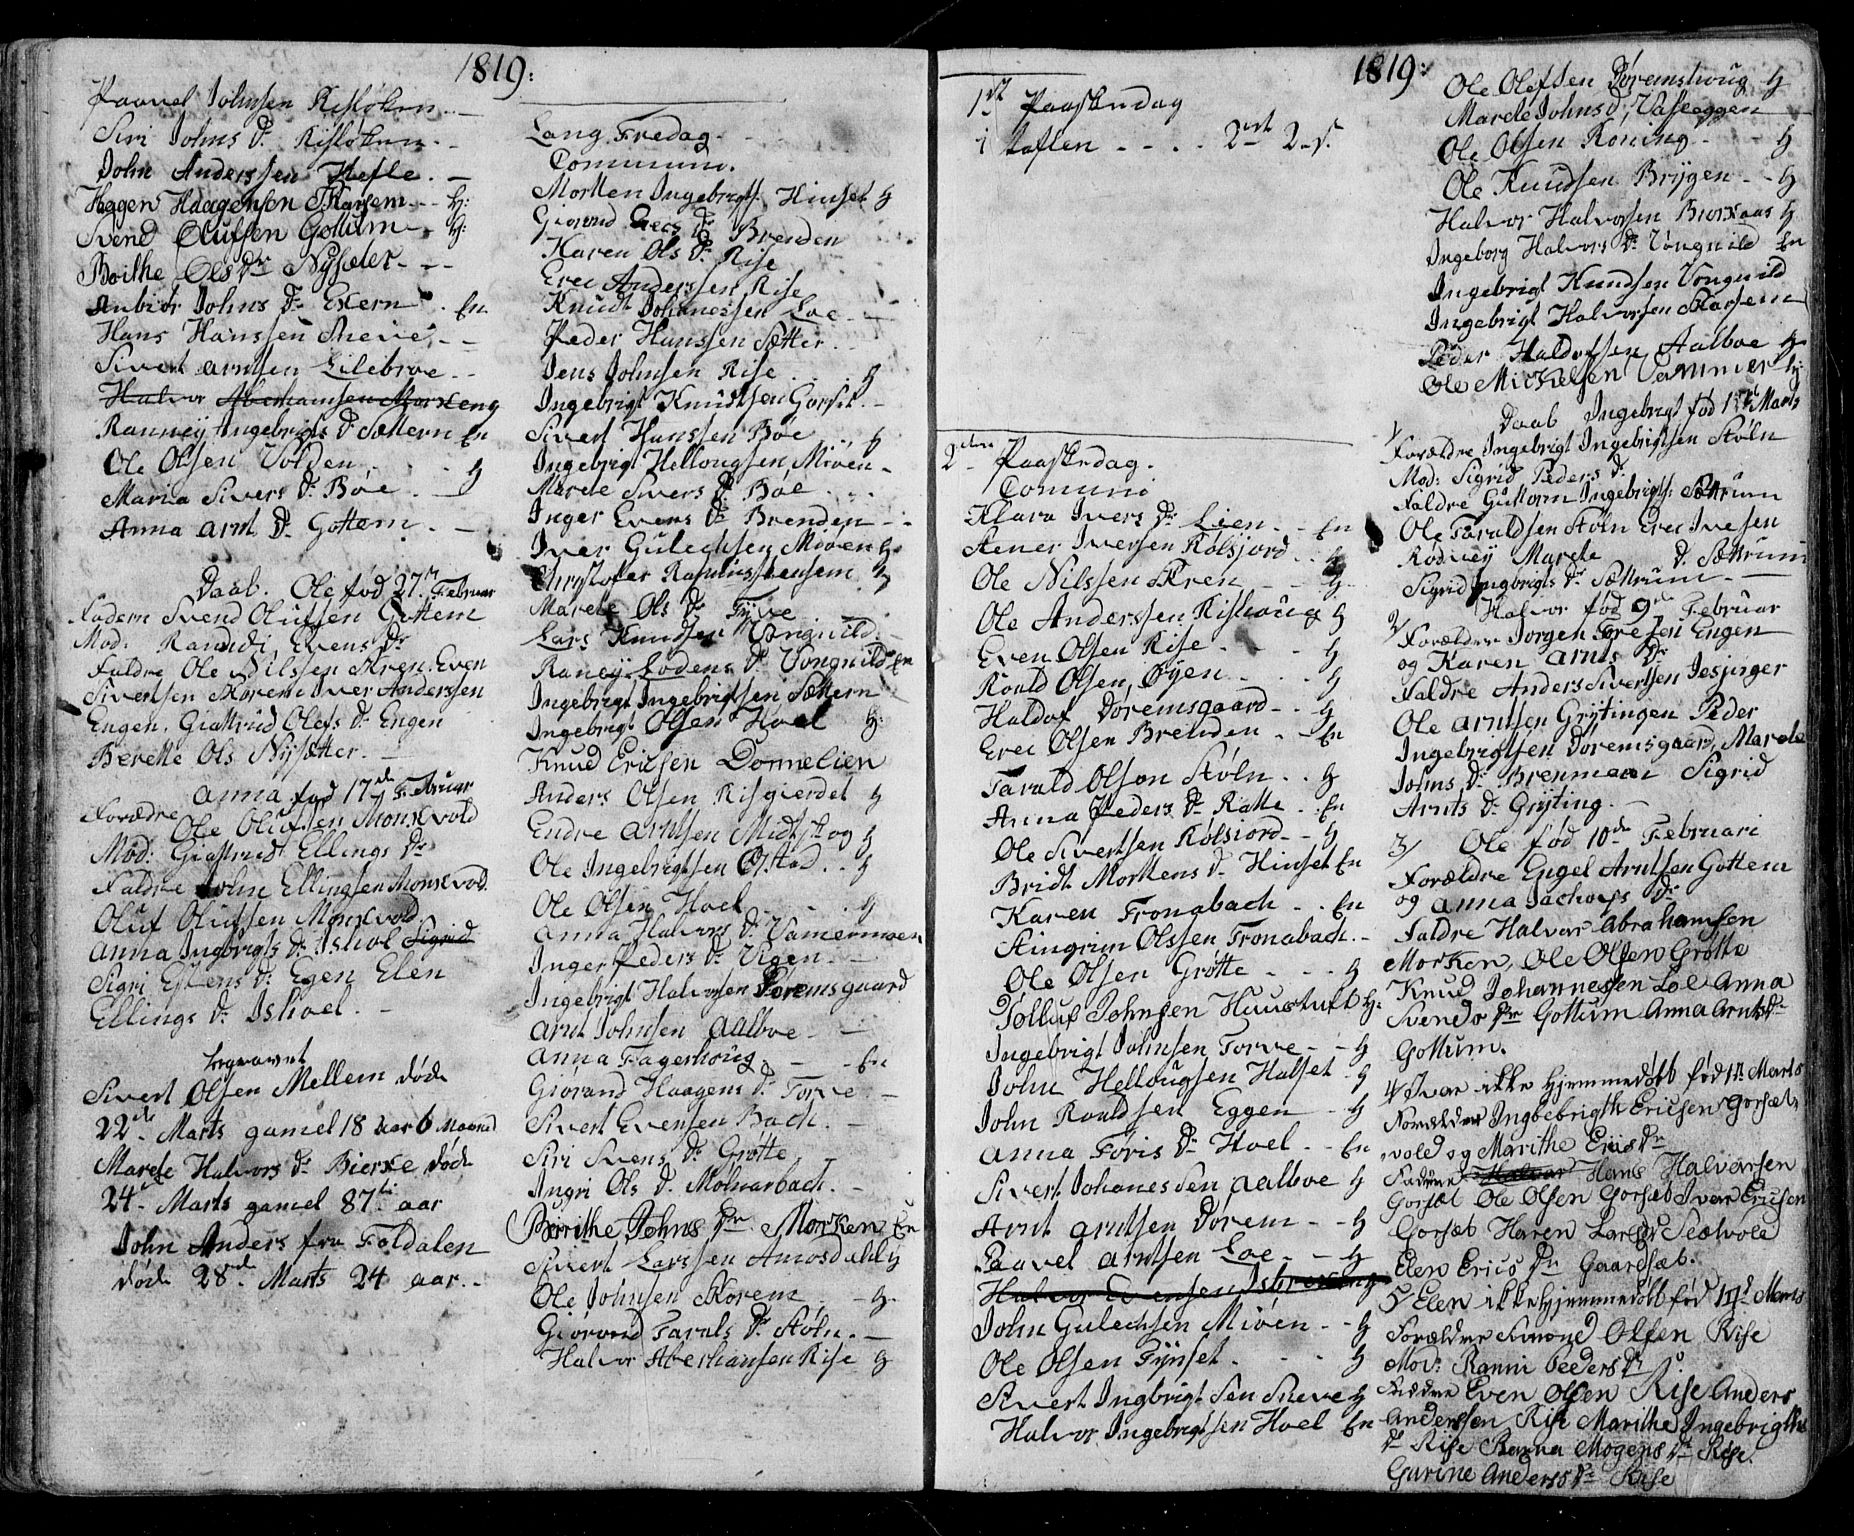 1819:
Paavel Johnsen Risløken
Siri Johns Dr. Risløken
John Anderssen Hefle
Haggen Haagensen Skarsem H:
Svend Olufsen Gottum H:
Berithe Ols Dr Nysæter
Anbiør Johns Dr Exern En
Hans Hanssen Sneve
Sivert Arntsen Lilebroe
Halvor Aberhamsen Morkeng
Ranney Ingebrigts Dr Sættern En
Ole Olsen Volden H
Maria Sivers Dr Bøe
Anna Arnt Dr Gottem
Daab. Ole fød 27de Februar
Fadern Svend Olufsen Gottem
Mod: Randi Evens Dr
Faldre Ole Nilssen Skren. Even
Sivertsen Skorem Iver Anderssen
Engen. Giøtrud Olefs Dr Engen
Berette Ols Nysætter
Anna fød 17de Februar
Forældre Ole Olufsen Monsvold
Mod: Giøtrud Ellings Dr
Faldre John Ellingsen Monsvod.
Oluf Olufsen Monsvold
Anna Ingbrigts Dr Ishol Sigrid
Sigri Estens Dr Egen Elen
Ellings Dr Ishoel
begravet
Sivert Olsen Mellem døde
22de Marts gamel 18 aar 6 Maaned
Marete Halvors Dr Bierke døde
24de Marts gamel 87ti aar
John Anders fra Foldalen
døde 28de Marts 24 aar.
Lang Fredag
Communi.
Morten Ingebrigts. Hinset H
Giorand Erecs Dr Brenden
Karen Ols Dr Rise
Erec Anderssen Rise
Knudt Johanessen Loe
Peder Hanssen Sætter
Jens Johnsen Rise H
Ingebrigt Knudtsen Gorset
Sivert Hanssen Bøe H
Ingebrigt Hellougsen Miøen
Marete Sivers Dr Bøe
Inger Evens Dr Brenden
Iver Gulechsen Miøen H
Chrystofer Rasmussen H
Marete Ols Dr Fyve
Lars Knudsen Vongnild
Raney Lodens Dr Vongnild En
Ingebrigt Ingebrigtsen Sættern
Ingebrigt Olsen Hoel H:
Knud Ericsen Donnelien
Anders Olsen Risgierdet H
Endre Arntsen Midtskog H
Ole Ingebrigtsen Ørstad H
Ole Olsen Hoel H
Anna Halvors Dr Vamermoen
Inger Peders Dr Vigen
Ingebrigt Halvorsen Doremsgaard
Arnt Johnsen Aalboe
Anna Fagerhoug En
Giorand Haagens Dr Torve
Sivert Evensen Bach
Siri Svens Dr Grøtte
Ingri Ols D. Molnarbach
Berithe Johns Dr Morken En
Sivert Larssen Amosdal H
Ole Johnsen Skorem H.
Giørand Tarals Dr Støln
Halvor Aberhansen Rise H
1819:
1st Paaskedag
i taflen 2rd 2 s.
2den Paaskedag.
Comuni
Klara Ivers Dr Lien En
Stener Iversen Rolsjord H
Ole Nilssen Skren H
Ole Anderssen Rishoug H
Even Olsen Rise H
Roald Olsen Øyen H
Haldof Doremsgaard H
Erec Olsen Brenden En
Tarald Olson Støln H
Anna Peders Dr Ratte En
Ole Sivertsen Rolsiord H
Bridt Mortens Dr Hinset En
Karen Tronabach En
Stingrim Olssen Tronabach
Ole Olsen Grøtte H
Tølluf Johnsen Huustuft H.
Ingebrigt Johnsen Torve H
John Hellougsen Halset H
John Roaldsen Eggen H
Anna Føris Dr Hoel En
Sivert Johanessen Aalboe H
Arnt Arntsen Dørem H
Paavel Arntsen Loe H
Halvor Evensen Isbrekeng
John Gulechsen Miøen H
Ole Olsen Tynset H
Sivert Ingbrigtsen Sneve H
Halvor Ingebrigtsen Hoel En
Ole Olefsen Doremshoug H
Marete Johns d. Vaseggen
Ole Olsen Roning H
Ole Knudsen Brygen H
Halvor Halvorsen Biørkaas H
Ingeborg Halvors Dr Vongnild En
Ingebrigt Knudsen Vongnild
Ingebrigt Halvorsen Skarsem
Peder Haldofsen Aalboe H
Ole Mickelsen Vammer H
1/ Daab Ingebrigt fød 15de Marts
Forældre Ingebrigt Ingebrigtsen Støln
Mod: Sigrid Peders Dr
Faldre Guttorm Ingebrigts: Sættrum
Ole Taraldsen Støln Erec Ivesen
Rodvey Marete D. Sættrum
Sigrid Ingbrigts Dr Sættrum
2/ Halvor fød 9de Februar
Forældre Jorgen Toresen Engen
og Karen Arnts Dr
Faldre Anders Sivertsen Jesjnger
Ole Arntsen Grytingen Peder
Ingebrigtsen Doremsgaard, Marete
Johns Dr Brenmoen Sigrid
Arnts Dr Gryting.
3/ Ole fød 10de Februari
Forældre Engel Arntsen Gottem
og Anna Jachops Dr
Faldre Halvor Abrahamsen
Morken, Ole Olsen Grøtte
Knud Johannessen Loe Anna
Svends Dr Gottum Anna Arnts Dr
Gottum.
4/ Ivar ikke Hjemmedøbt fød 14 Marts
Forældre Ingbebrigth Ericsen Gorsæt-
vold og Marithe Erics Dr
Fadrne Halvar Hans Halvarsen
Gorsæt Ole Olsen Gorsæt Ivar Ericsen
Gorsæt Haren Larsdr Sætvole
Elen Erics Dr Gaarsæt.
5 Elen ikke hjemmedøbt fød 14de Marts
Forældre Simond Olsen Rise
Mod: Ranni Peders Dr
Fadrne Even Olsen Rise Anders
Anderssen Rise Marithe Ingebrigths
Dr Rise Ranna Mogens Dr Rise.
Gurine Anders Dr Rise